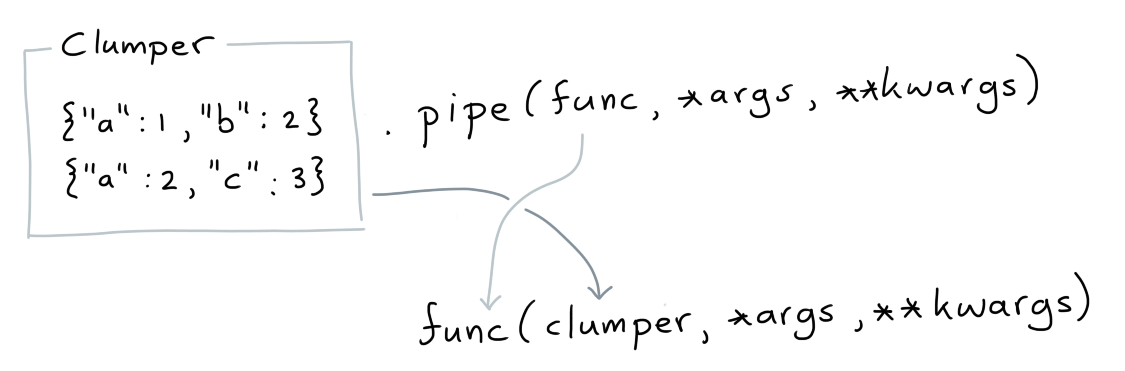 Clumper
{"a" : 1 , "b" : 2}
{"a" : 2 , "c" : 3}
. pipe (func, *args, **kwargs)
func (clumper, *args , **kwargs)